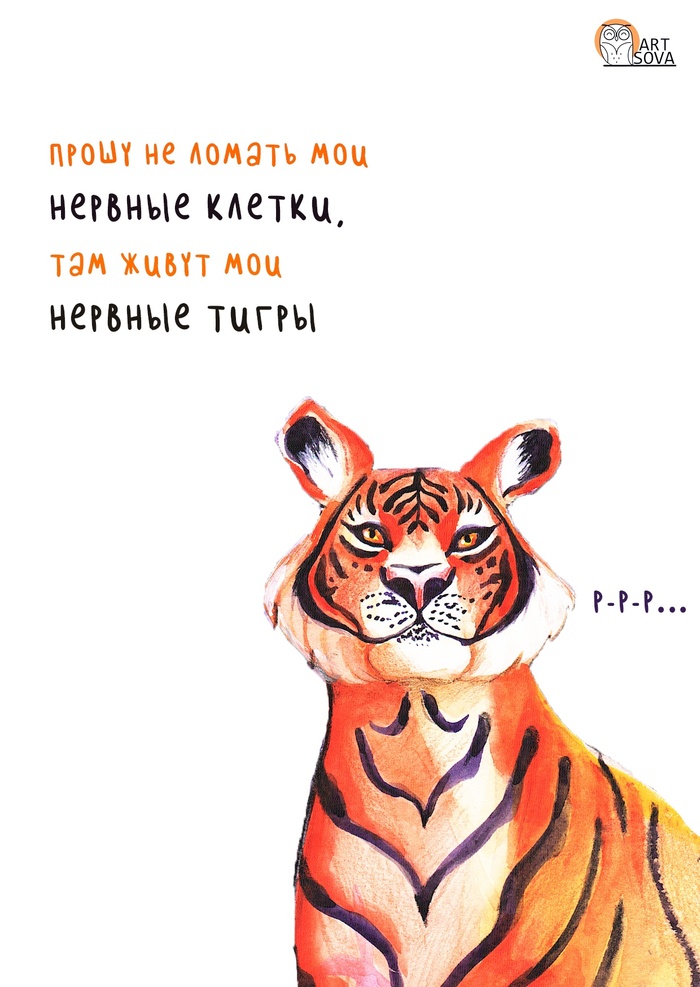 ART
SOVA
прошу не ломать мои
нервные клетки,
там живут мои
нервные тигры
Р-Р-Р...